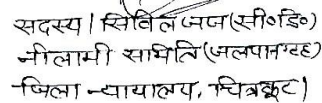 सदस्य / सिविल जज (सी०डि०)
नीलामी समिति (जलपान गृह)
जिला न्यायालय, चित्रकूट।